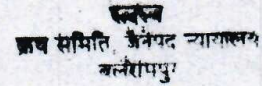 सदस्य
क्रय समिति, जनपद न्यायालय
बलरामपुर